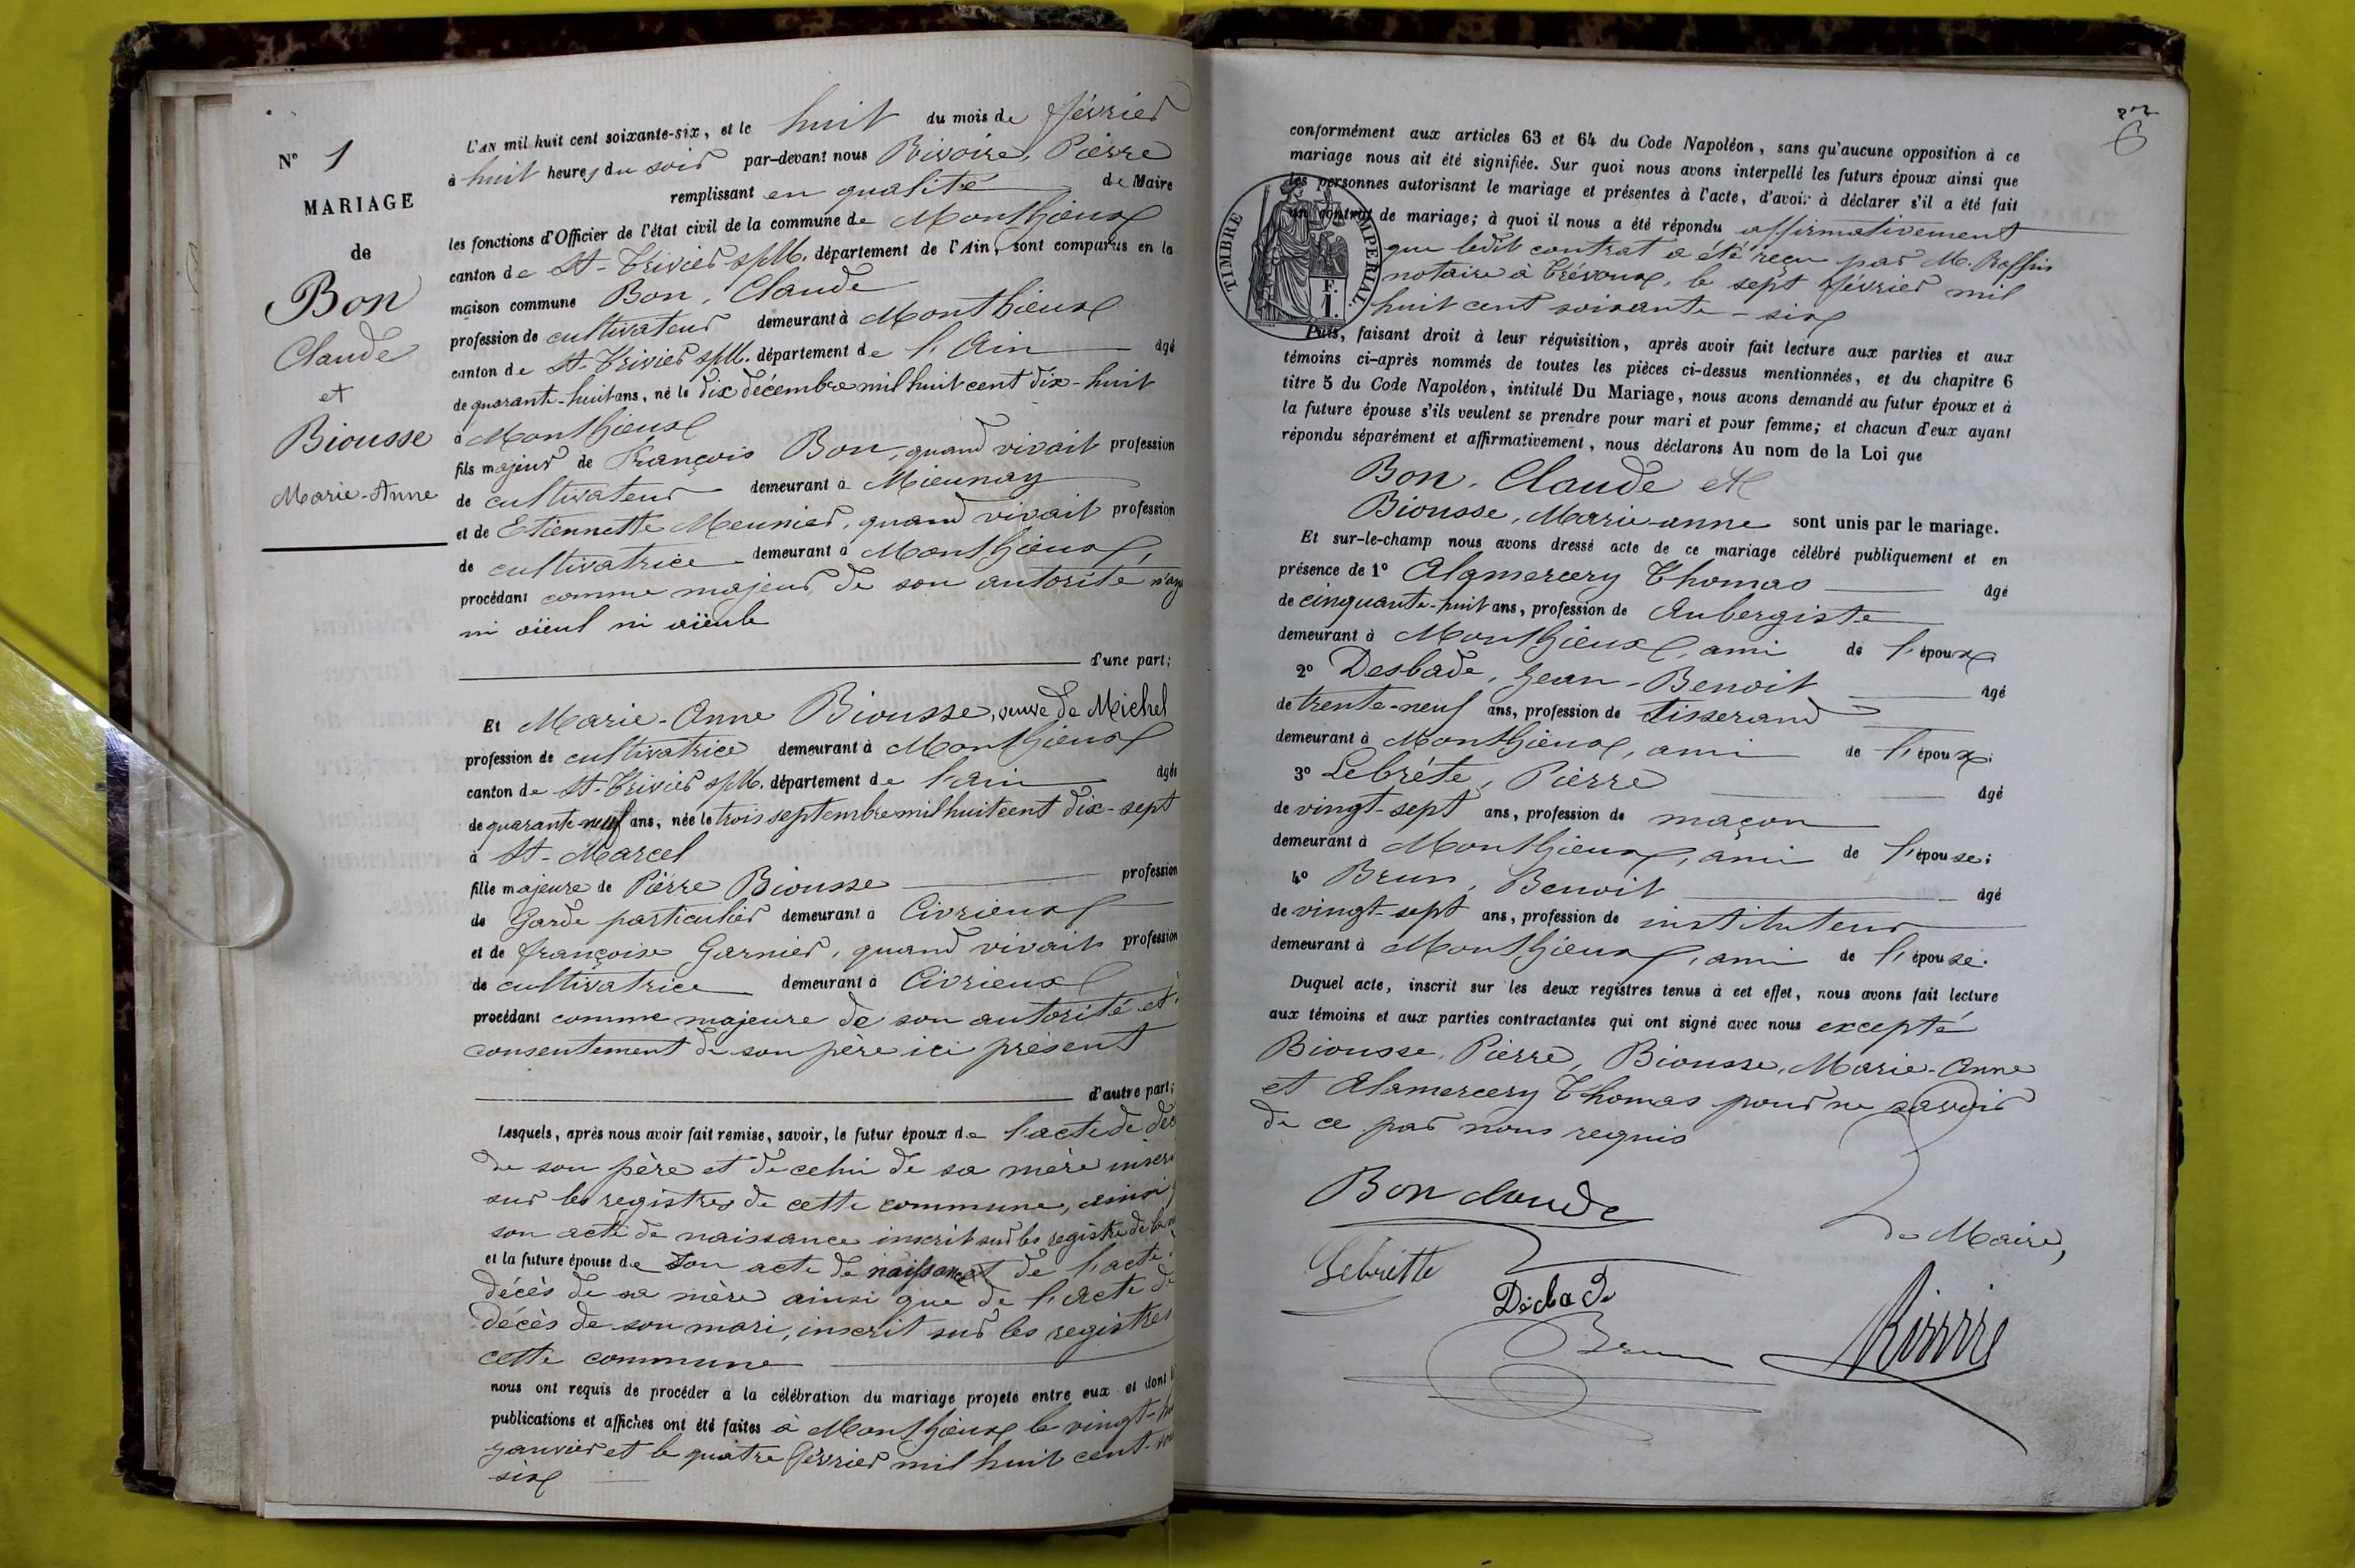 N° 1
MARIAGE
de
Bon
Claude
et
Biousse
Marie-Anne
L'AN mil huit cent soixante-six, et le huit du mois de février
à huit heures du soir par-devant nous Rivoire, Pierre
remplissant en qualité de Maire
les fonctions d'Officier de l'état civil de la commune de Monthieux
canton de St-Trivier s/M. département de l'Ain, sont comparus en la
maison commune Bon, Claude
profession de cultivateur demeurant à Monthieux
canton de St-Trivier s/M. département de l'Ain âgé
de quarante-huit ans, né le dix décembre mil huit cent dix-huit
à Monthieux
fils majeur de François Bon, quand vivait profession
de cultivateur demeurant à Mieunay
et de Etiennette Meunier, quand vivait profession
de cultivatrice demeurant à Monthieux,
procédant comme majeur de son autorité n'ay
ni aïeul ni aïeule
d'une part;
Et Marie-Anne Biousse, veuve de Michel
profession de cultivatrice demeurant à Monthieux
canton de St-Trivier s/M. département de l'Ain âgée
de quarante-neuf ans, née le trois septembre mil huit cent dix-sept
à St-Marcel
fille majeure de Pierre Biousse profession
de Garde particulier demeurant à Civrieux
et de françoise Garnier, quand vivait profession
de cultivatrice demeurant à Civrieux
procédant comme majeure de son autorité et
consentement de son père ici présent
d'autre part;
Lesquels, après nous avoir fait remise, savoir, le futur époux de l'acte de déc
de son père et de celui de sa mère inscri
sur les registres de cette commune, ainsi
son acte de naissance inscrit sur les registre de la
et la future épouse de son acte de naissance et de l'acte
décès de sa mère ainsi que de l'acte de
décès de son mari, inscrit sur les registres
cette commune
nous ont requis de procéder à la célébration du mariage projeté entre eux et dont
publications et affiches ont été faites à Monthieux le vingt-
janvier et le quatre février mil huit cent
six
6
conformément aux articles 63 et 64 du Code Napoléon, sans qu'aucune opposition à ce
mariage nous ait été signifiée. Sur quoi nous avons interpellé les futurs époux ainsi que
les personnes autorisant le mariage et présentes à l'acte, d'avoir à déclarer s'il a été fait
un contrat de mariage; à quoi il nous a été répondu affirmativement
que ledit contrat a été reçu par M. Raffin
notaire à Trévoux, le sept février mil
huit cent soixante-six
TIMBRE IMPERIAL.
F.
1.
Puis, faisant droit à leur réquisition, après avoir fait lecture aux parties et aux
témoins ci-après nommés de toutes les pièces ci-dessus mentionnées, et du chapitre 6
titre 5 du Code Napoléon, intitulé Du Mariage, nous avons demandé au futur époux et à
la future épouse s'ils veulent se prendre pour mari et pour femme; et chacun d'eux ayant
répondu séparément et affirmativement, nous déclarons Au nom de la Loi que
Bon, Claude et
Biousse, Marie-anne sont unis par le mariage.
Et sur-le-champ nous avons dressé acte de ce mariage célébré publiquement et en
présence de 1° Alamercery Thomas âgé
de cinquante-huit ans, profession de Aubergiste
demeurant à Monthieux, ami de l'époux
2° Desbade, Jean-Benoit âgé
de trente-neuf ans, profession de Tisserand
demeurant à Monthieux, ami de l'époux;
3° Lebrète, Pierre âgé
de vingt-sept ans, profession de maçon
demeurant à Monthieux, ami de l'épouse;
4° Brun, Benoit âgé
de vingt-sept ans, profession de instituteur
demeurant à Monthieux, ami de l'épouse.
Duquel acte, inscrit sur les deux registres tenus à cet effet, nous avons fait lecture
aux témoins et aux parties contractantes qui ont signé avec nous excepté
Biousse, Pierre, Biousse, Marie-Anne
et Alamercery Thomas pour ne savoir
de ce par nous requis
Bon claude
Le Maire,
Lebrette
Décbade
Brun
Rivoire